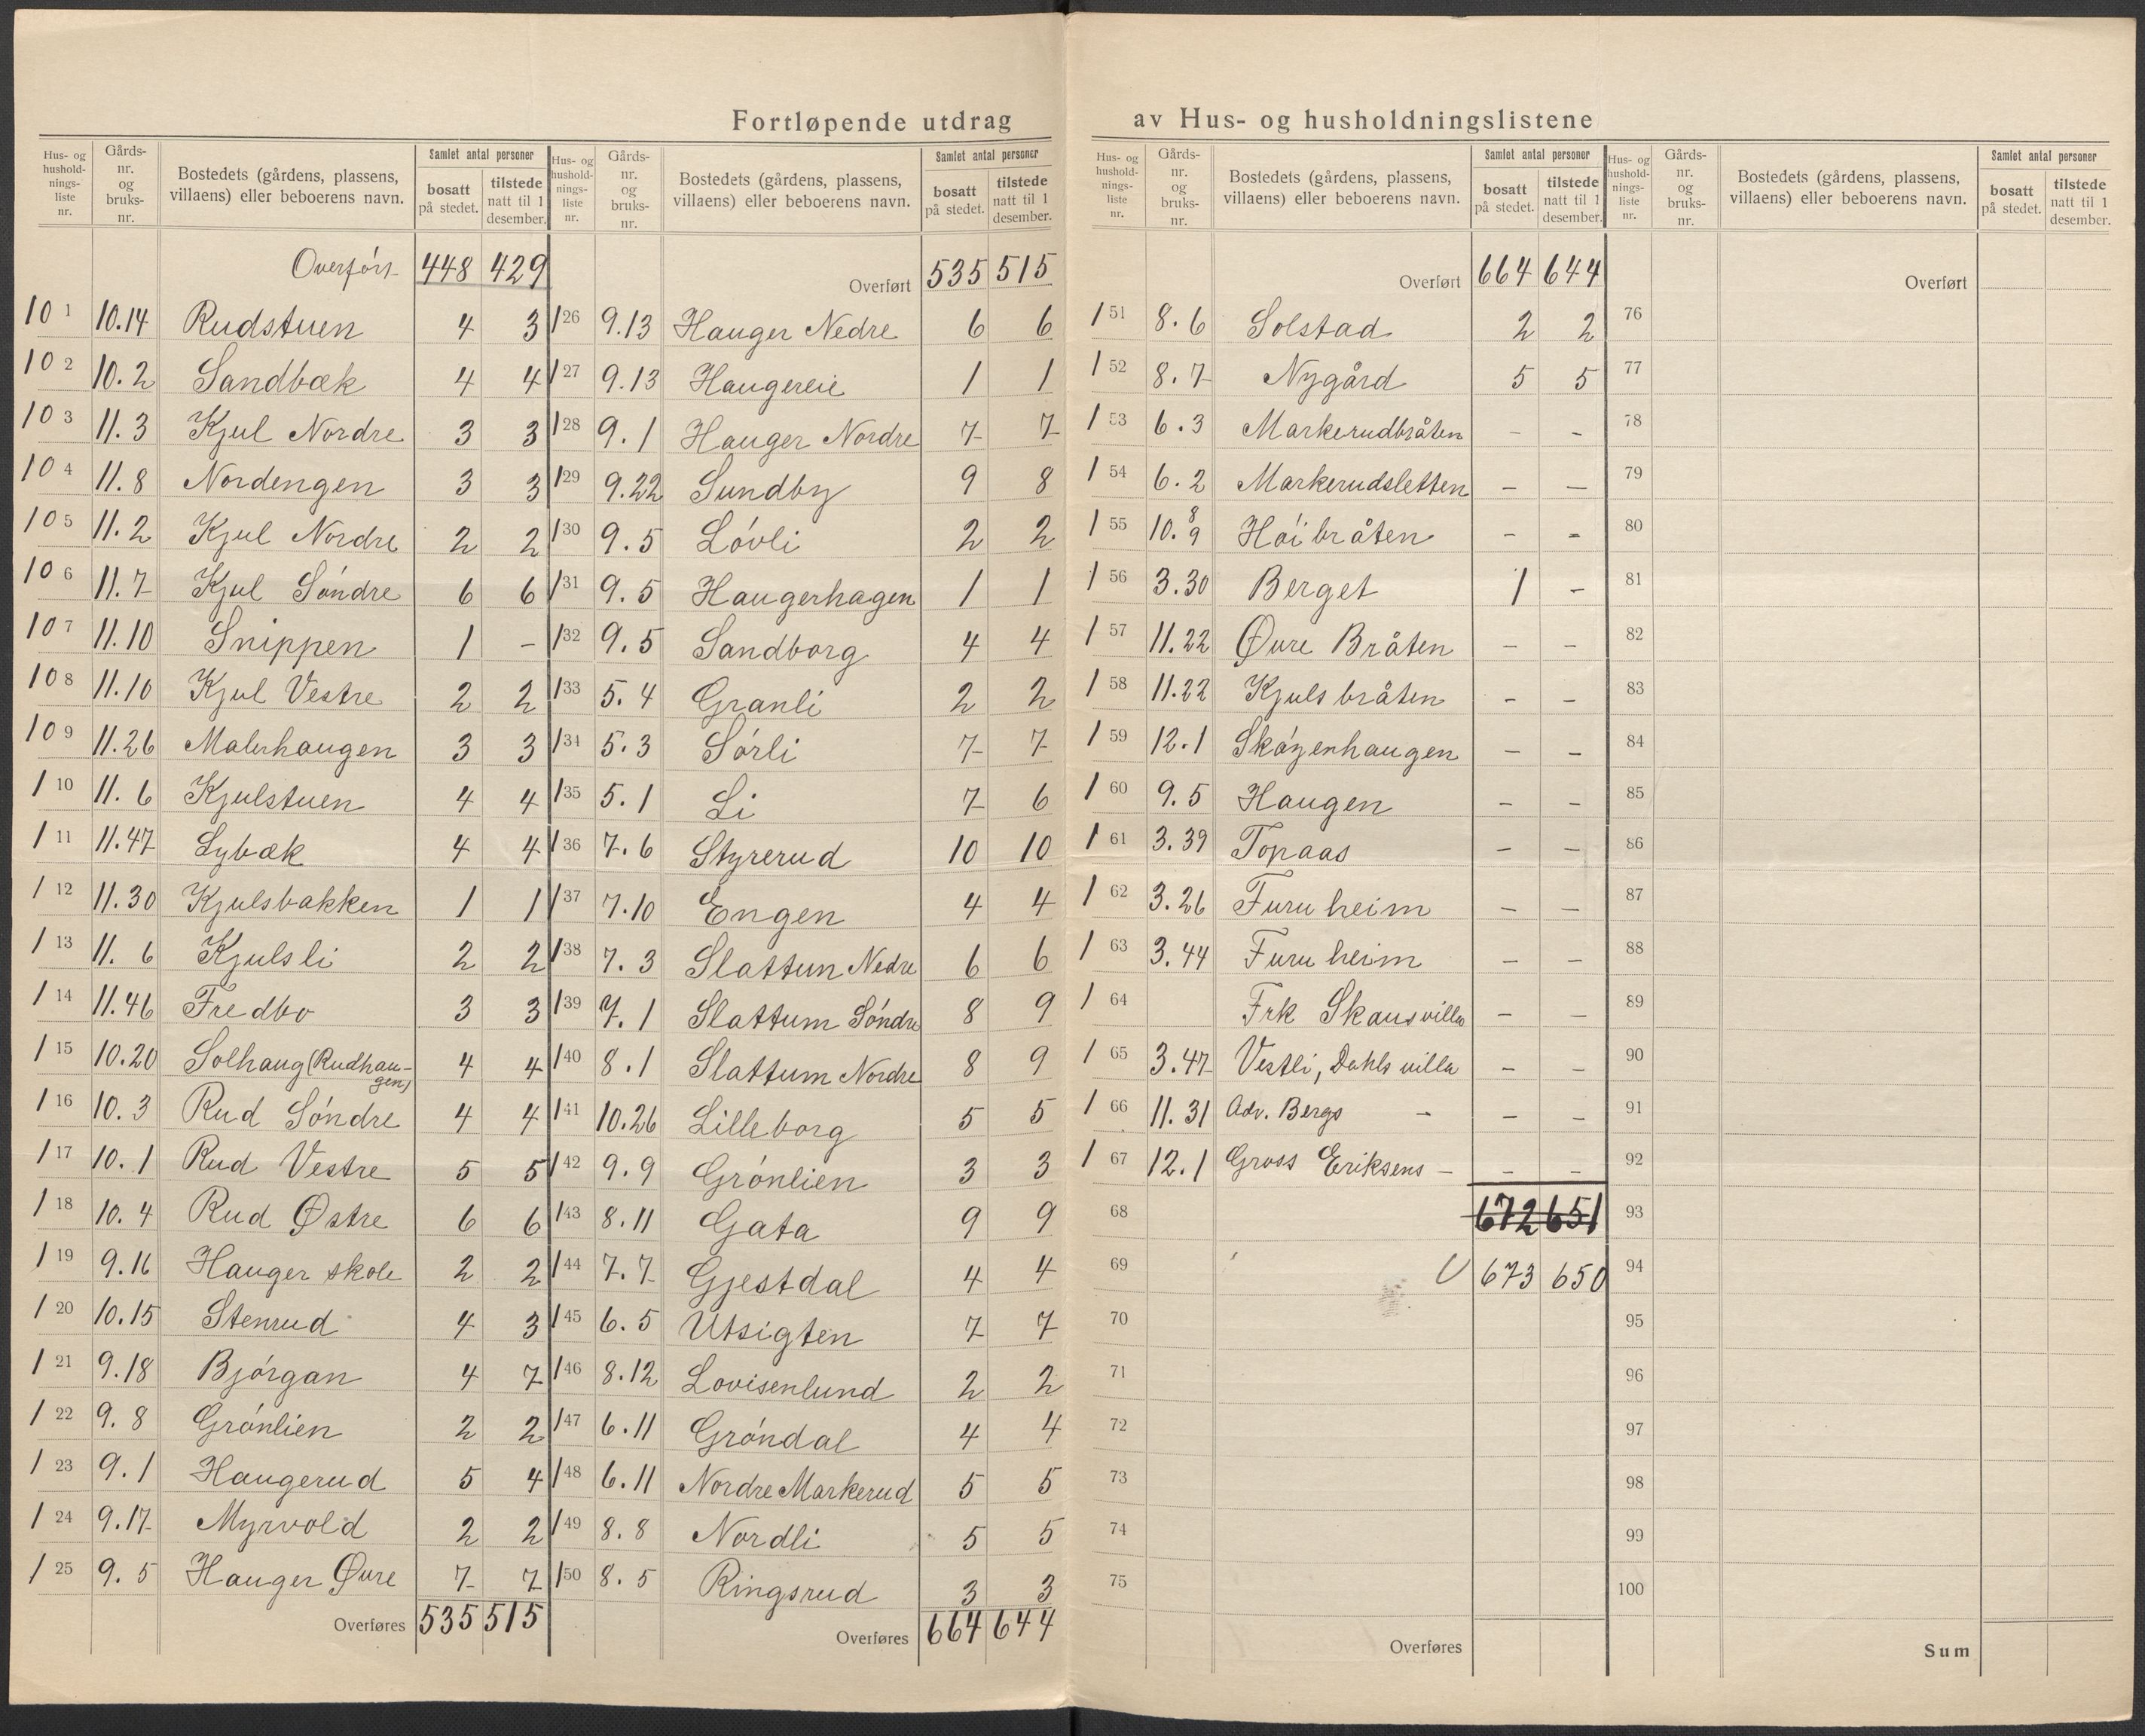 Fortløpende utdrag av Hus- og husholdningslistene
Hus- og hushold-nings-liste nr. | Gårds-nr. og bruks-nr. | Bostedets (gårdens, plassens, villaens) eller beboerens navn. | Samlet antal personer | bosatt på stedet. | tilstede natt til 1 desember.
Overført 448 429
101 10.14 Rudstuen 4 3
102 10.2 Sandbæk 4 4
103 11.3 Kjul Nordre 3 3
104 11.8 Nordengen 3 3
105 11.2 Kjul Nordre 2 2
106 11.7 Kjul Søndre 6 6
107 11.10 Snippen 1 -
108 11.10 Kjul Vestre 2 2
109 11.26 Malerhaugen 3 3
110 11.6 Kjulstuen 4 4
111 11.47 Lybæk 4 4
112 11.30 Kjulsbakken 1 1
113 11.6 Kjulsli 2 2
114 11.46 Fredbo 3 3
115 10.20 Solhaug (Rudhau-
gen) 4 4
116 10.3 Rud Søndre 4 4
117 10.1 Rud Vestre 5 5
118 10.4 Rud Østre 6 6
119 9.16 Hauger skole 2 2
120 10.15 Stenrud 4 3
121 9.18 Bjørgan 4 7
122 9.8 Grønlien 2 2
123 9.1 Haugerud 5 4
124 9.17 Myrvold 2 2
125 9.5 Hauger Øvre 7 7
Overføres 535 515
Hus- og hushold-nings-liste nr. | Gårds-nr. og bruks-nr. | Bostedets (gårdens, plassens, villaens) eller beboerens navn. | Samlet antal personer | bosatt på stedet. | tilstede natt til 1 desember.
Overført 535 515
126 9.13 Hauger Nedre 6 6
127 9.13 Haugereie 1 1
128 9.1 Hauger Nordre 7 7
129 9.22 Sundby 9 8
130 9.5 Løvli 2 2
131 9.5 Haugerhagen 1 1
132 9.5 Sandborg 4 4
133 5.4 Granli 2 2
134 5.3 Sørli 7 7
135 5.1 Li 7 6
136 7.6 Styrerud 10 10
137 7.10 Engen 4 4
138 7.3 Slattun Nedre 6 6
139 7.1 Slattum Søndre 8 9
140 8.1 Slattum Nordre 8 9
141 10.26 Lilleborg 5 5
142 9.9 Grønlien 3 3
143 8.11 Gata 9 9
144 7.7 Gjestdal 4 4
145 6.5 Utsigten 7 7
146 8.12 Lovisenlund 2 2
147 6.11 Grøndal 4 4
148 6.11 Nordre Markerud 5 5
149 8.8 Nordli 5 5
150 8.5 Ringsrud 3 3
Overføres 664 644
Hus- og hushold-nings-liste nr. | Gårds-nr. og bruks-nr. | Bostedets (gårdens, plassens, villaens) eller beboerens navn. | Samlet antal personer | bosatt på stedet. | tilstede natt til 1 desember.
Overført 664 644
151 8.6 Solstad 2 2
152 8.7 Nygård 5 5
153 6.3 Markerudbråten - -
154 6.2 Markerudsletten - -
155 10.8 9 Høibråten - -
156 3.30 Berget 1 -
157 11.22 Øvre Bråten - -
158 11.22 Kjulsbråten - -
159 12.1 Skøyenhaugen - -
160 9.5 Haugen - -
161 3.39 Topaas - -
162 3.26 Furuheim - -
163 3.44 Furuheim - -
164 Frk Skausvilla - -
165 3.47 Vestli, Dahls villa - -
166 11.31 Adv. Bergs - - -
167 12.1 Gross Eriksens - - -
68 672 651
69 673 650
70
71
72
73
74
75
Overføres
Hus- og hushold-nings-liste nr. | Gårds-nr. og bruks-nr. | Bostedets (gårdens, plassens, villaens) eller beboerens navn. | Samlet antal personer | bosatt på stedet. | tilstede natt til 1 desember.
Overført
76
77
78
79
80
81
82
83
84
85
86
87
88
89
90
91
92
93
94
95
96
97
98
99
100
Sum